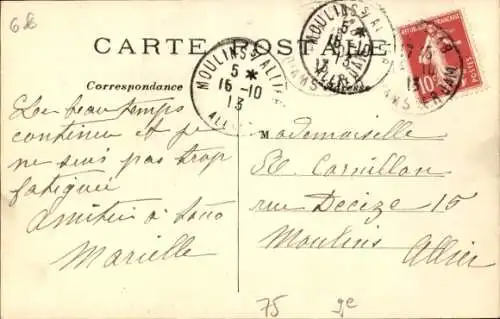 6 £
CARTE POSTALE
MOULINS S ALLIER
5 *
16-10
13
ALLIER
MOULINS S ALLIER
5 *
16-10
13
ALLIER
10
POSTES
Correspondance
Le beau temps
continue et je
ne suis pas trop
fatiguée
amitiés à tous
Marielle
Mademoiselle
Cornillon
rue Decize 15
Moulins
Allier
75